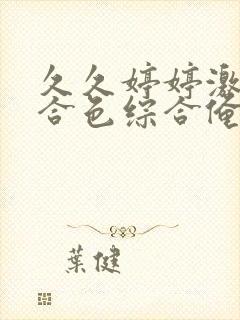 久久婷婷激
合色综合俺
葉健